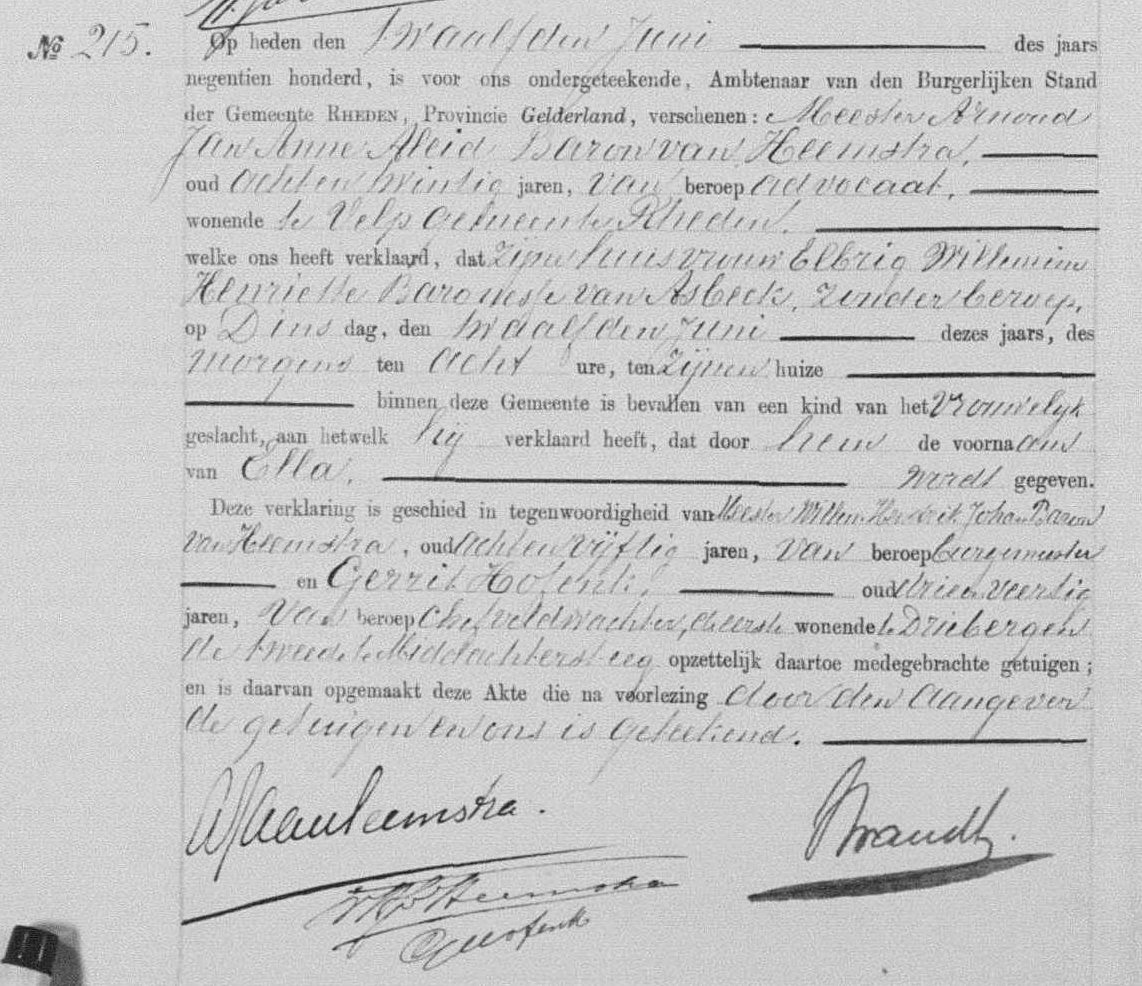 No 215.
Op heden den twaalfden Juni des jaars
negentien honderd, is voor ons ondergeteekende, Ambtenaar van den Burgerlijken Stand
der Gemeente RHEDEN, Provincie Gelderland, verschenen: Meester Arnoud
Jan Anne Aleid Baron van Heemstra,
oud achtentwintig jaren, van beroep advocaat,
wonende te Velp gemeente Rheden.
welke ons heeft verklaard, dat zijne huisvrouw Elbrig Willemine
Henriette Baronesse van Asbeck, zonder beroep,
op Dinsdag, den twaalfden Juni dezes jaars, des
morgens ten acht ure, ten zijnen huize
binnen deze Gemeente is bevallen van een kind van het vrouwelijk
geslacht, aan hetwelk hij verklaard heeft, dat door hem de voornaam
van Ella. wordt gegeven.
Deze verklaring is geschied in tegenwoordigheid van Meester Willem Hendrik Johan Baron
van Heemstra, oud achtenvijftig jaren, van beroep burgemeester
en Gerrit Hofenk, oud drieenveertig
jaren, van beroep chefveldwachter, de eerste wonende te Driebergen
de tweede te Middachtersteeg opzettelijk daartoe medegebrachte getuigen;
en is daarvan opgemaakt deze Akte die na voorlezing door den aangever
de getuigen en ons is geteekend.
AJAvanHeemstra.
Brandt.
Heemstra
GHofenk